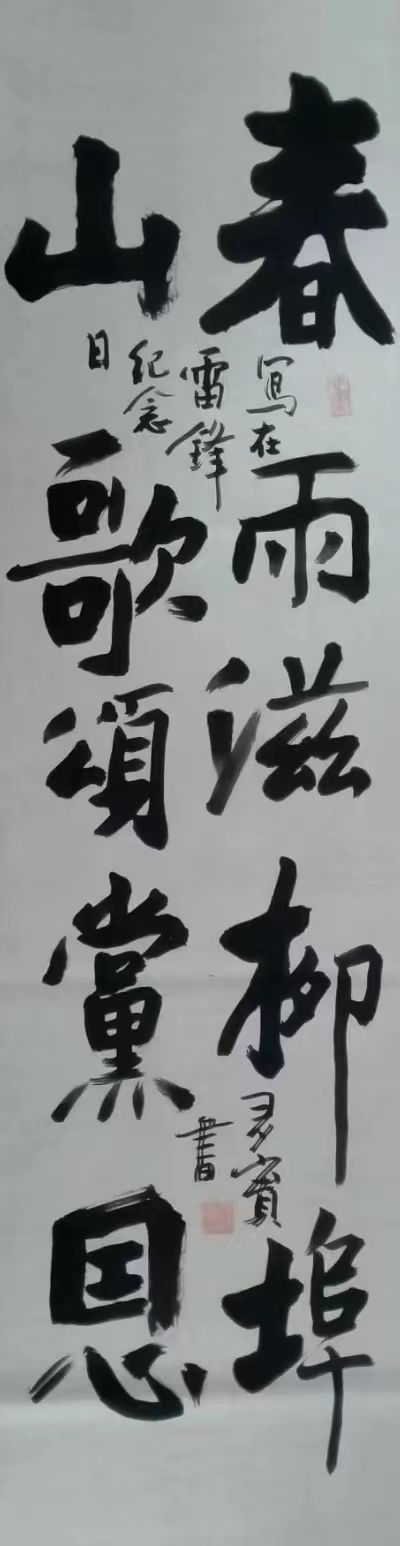 春雨滋柳埠
山歌頌黨恩
寫在
雷鋒
紀念
日
賓
書